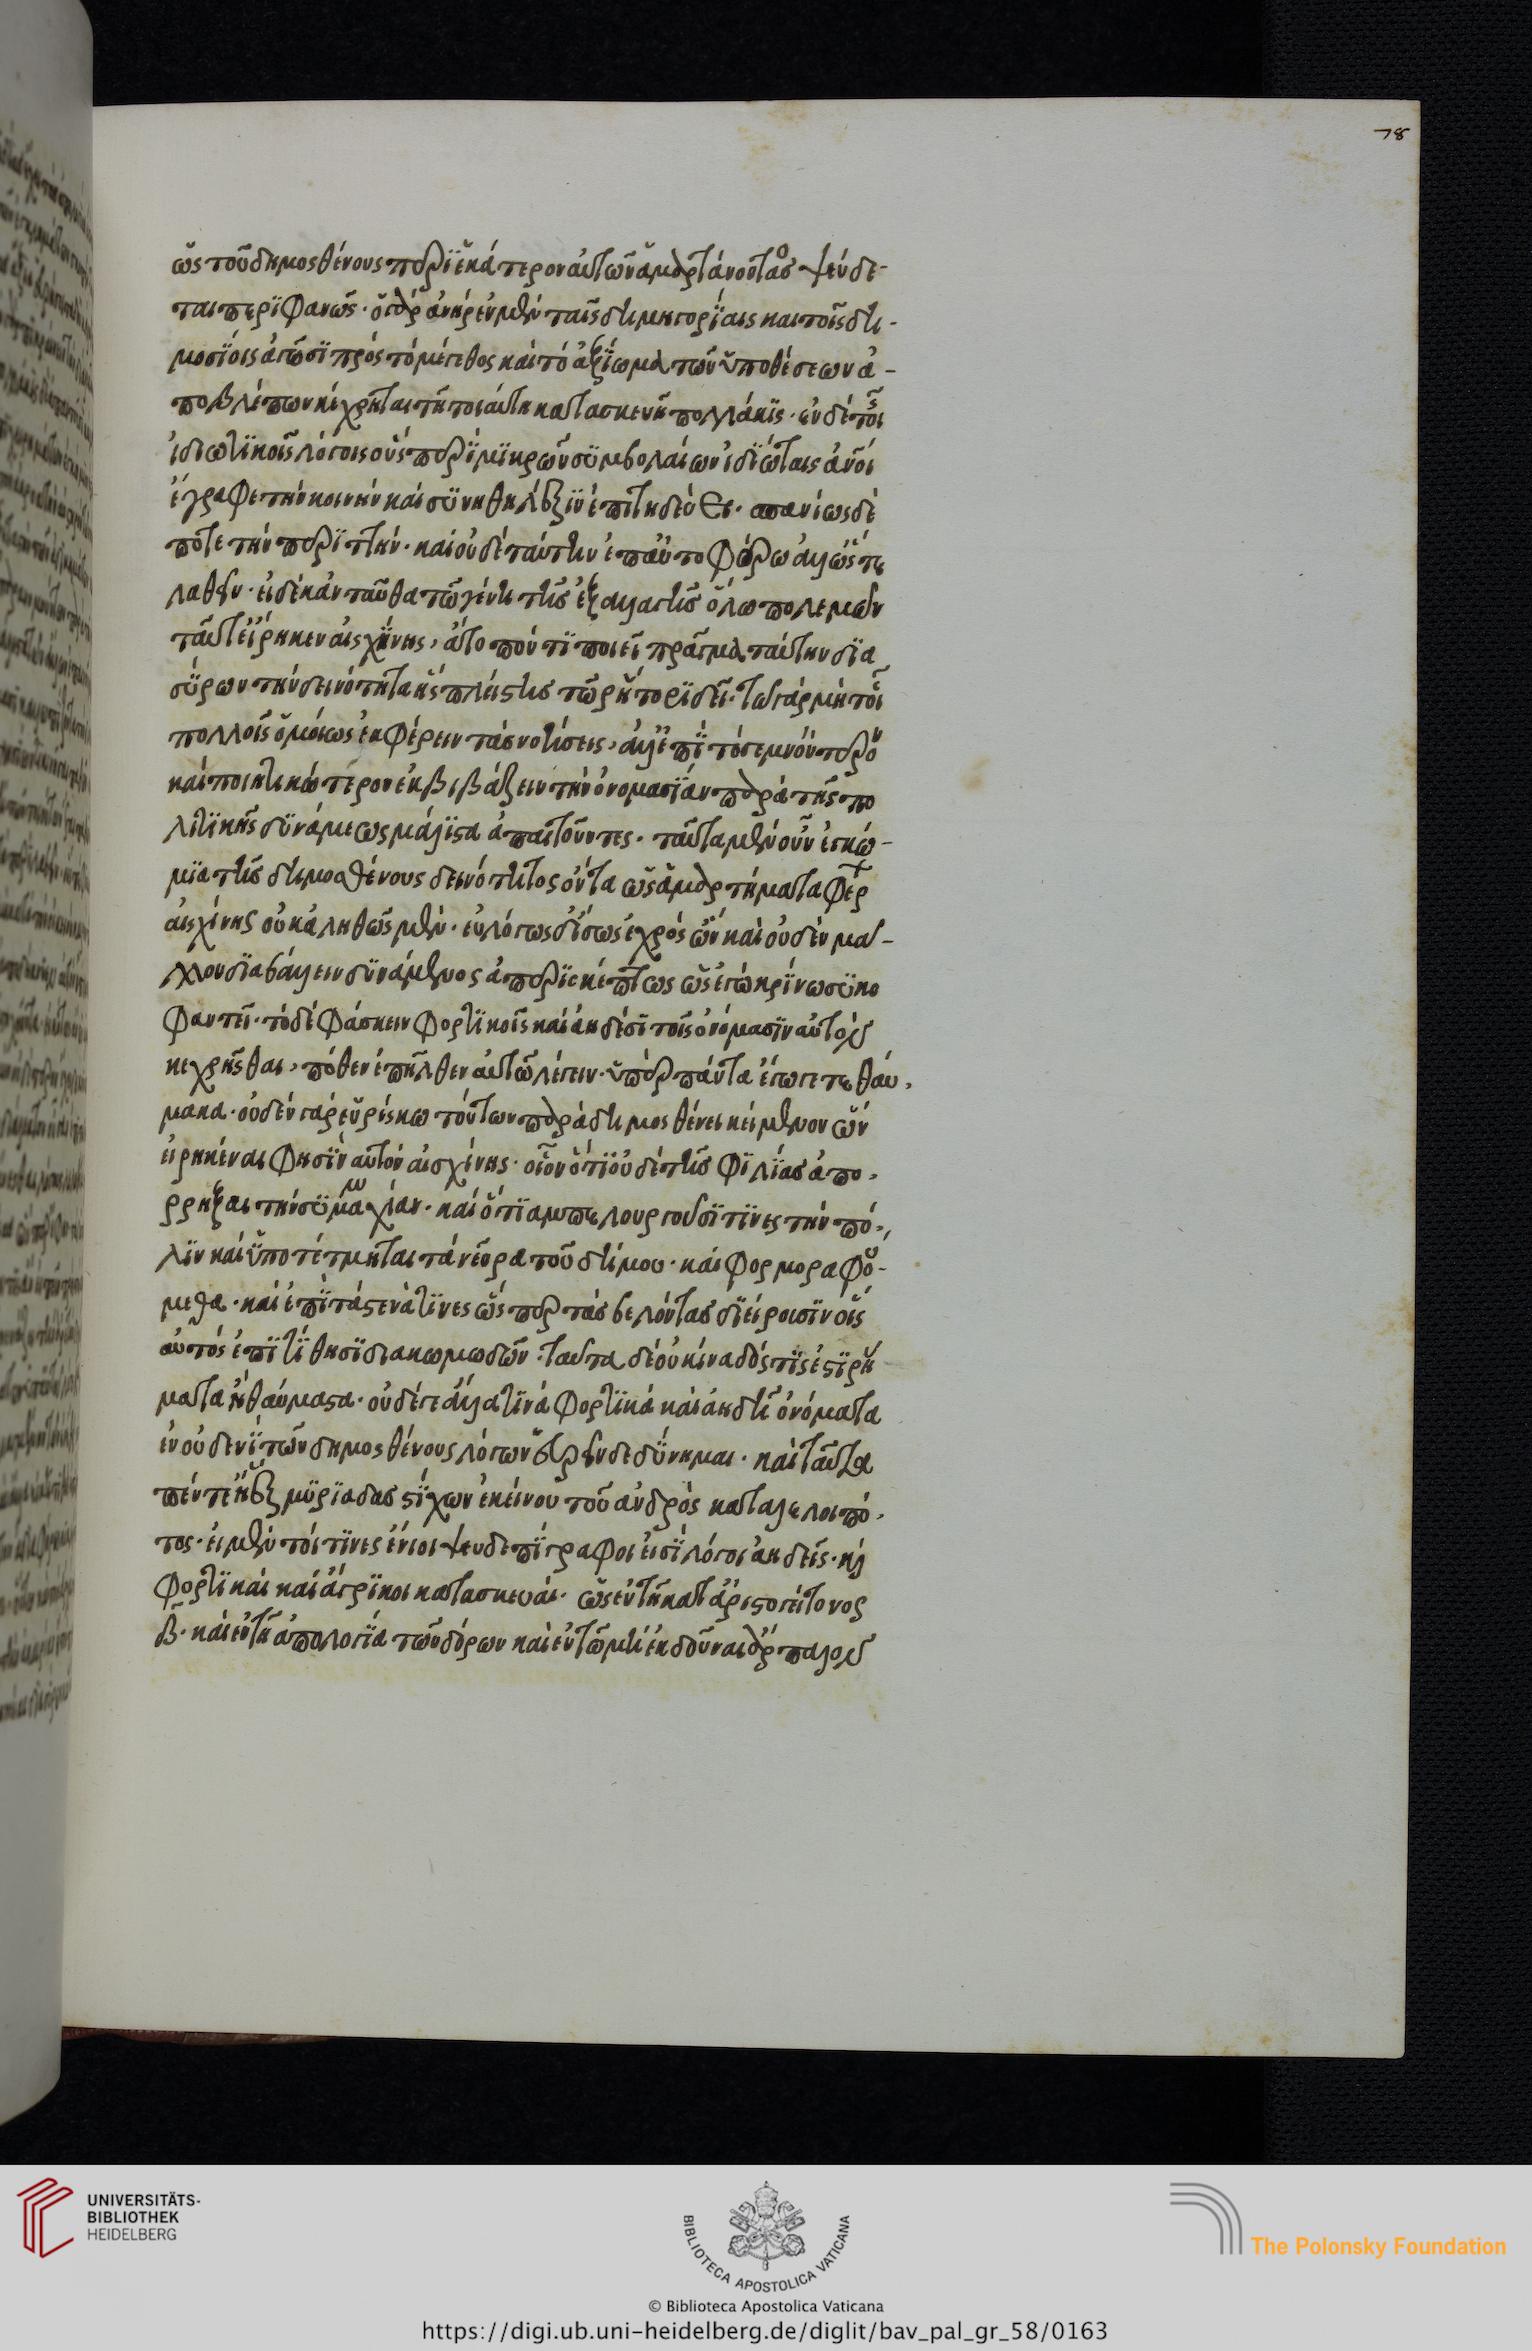 78
ὡς τοῦ δημοσθένους περὶ ἑκάτερον αὐτῶν ἁμαρτάνοντος ψεύδε-
ται περιφανῶς· ὁ γὰρ ἀνὴρ ἐν μὲν ταῖς δημηγορίαις καὶ τοῖς δη-
μοσίοις ἀγῶσι πρὸς τὸ μέγεθος καὶ τὸ ἀξίωμα τῶν ὑποθέσεων ἀ-
ποβλέπων κέχρηται τῇ τοιαύτῃ κατασκευῇ πολλάκις· ἐν δὲ τοῖς
ἰδιωτικοῖς λόγοις οὓς περὶ μικρῶν συμβολαίων ἰδιώταις ἀνοι
ἔγραφε τὴν κοινὴν καὶ συνήθη λέξιν ἐπιτηδεύει· σπανίως δέ
ποτε τὴν περιττήν· καὶ οὐδὲ ταύτην ἐπ' αὐτοφώρῳ ἀλλ' ὥστε
λαθεῖν· εἰ δὲ κἀνταῦθα τῷ γένει τῆς ἐξαλλαγῆς ὅλῳ πολεμῶν
ταῦτ' εἴρηκεν αἰσχίνης, ἄτοπόν τι ποιεῖ πρᾶγμα ταύτην δια
σύρων τὴν δεινότητα ἧς πλείστης τῷ ῥήτορι δεῖ· τὸ γὰρ μὴ τοῖς
πολλοῖς ὁμοίως ἐκφέρειν τὰς νοήσεις, ἀλλ' ἐπὶ τὸ σεμνότερον
καὶ ποιητικώτερον ἐκβιβάζειν τὴν ὀνομασίαν παρὰ τῆς πο
λιτικῆς δυνάμεως μάλιστα ἀπαιτοῦντες· ταῦτα μὲν οὖν ἐγκώ-
μια τῆς δημοσθένους δεινότητος ὄντα ὡς ἁμαρτήματα φέρει
αἰσχίνης οὐκ ἀληθῶς μὲν· εὐλόγως δ' ἴσως ἐχρὸς ὢν καὶ οὐδὲν μαλ-
λον διαβάλλειν δυνάμενος ἀπερισκέπτως ὡς ἐγὼ κρίνω συκο
φαντεῖ· τὸ δὲ φάσκειν φορτικοῖς καὶ ἀηδέσι τοῖς ὀνόμασιν αὐτὸν
κεχρῆσθαι, πόθεν ἐπῆλθεν αὐτῷ λέγειν· ὑπὲρ πάντα ἔγωγε τεθαύ-
μακα· οὐδὲν γὰρ εὑρίσκω τούτων παρὰ δημοσθένει κείμενον ὧν
εἰρηκέναι φησὶν αὐτὸν αἰσχίνης· οἷον ὅτι οὐ δεῖ τῆς φιλίας ἀπο-
ρρῆξαι τὴν συμμαχίαν· καὶ ὅτι ἀμπελουργοῦσί τινες τὴν πό-
λιν καὶ ὑποτέτμηται τὰ νεῦρα τοῦ δήμου· καὶ φορμοραφού-
μεθα· καὶ ἐπὶ τὰ στενά τινες ὥσπερ τὰς βελόντας διείρουσιν οἷς
αὐτὸς ἐπιτίθησι διακωμωδῶν· ταῦτα δὲ οὐ κίναδός τις ἐστι ῥή
ματα ἢ θαύματα· οὐδέ γε ἄλλα τινὰ φορτικὰ καὶ ἀηδῆ ὀνόματα
ἐν οὐδενὶ τῶν δημοσθένους λόγων εὑρεῖν δεδύνημαι· καὶ ταῦτα
πέντε ἢ ἓξ μυριάδας στίχων ἐκείνου τοῦ ἀνδρὸς καταλελοιπό-
τος· εἰ μέν τοί τινες ἔνιοι ψευδεπίγραφοι εἰσὶ λόγοι ἀηδεῖς· καὶ
φορτικαὶ καὶ ἄγρικοι κατασκευαί· ὡς ἐν τῇ κατ' ἀριστογείτονος
β· καὶ ἐν τῇ ἀπολογίᾳ τῶν δώρων καὶ ἐν τῷ μὴ ἐκδοῦναι ἅρπαλον
UNIVERSITÄTS-
BIBLIOTHEK
HEIDELBERG
BIBLIOTECA APOSTOLICA VATICANA
The Polonsky Foundation
© Biblioteca Apostolica Vaticana
https://digi.ub.uni-heidelberg.de/diglit/bav_pal_gr_58/0163